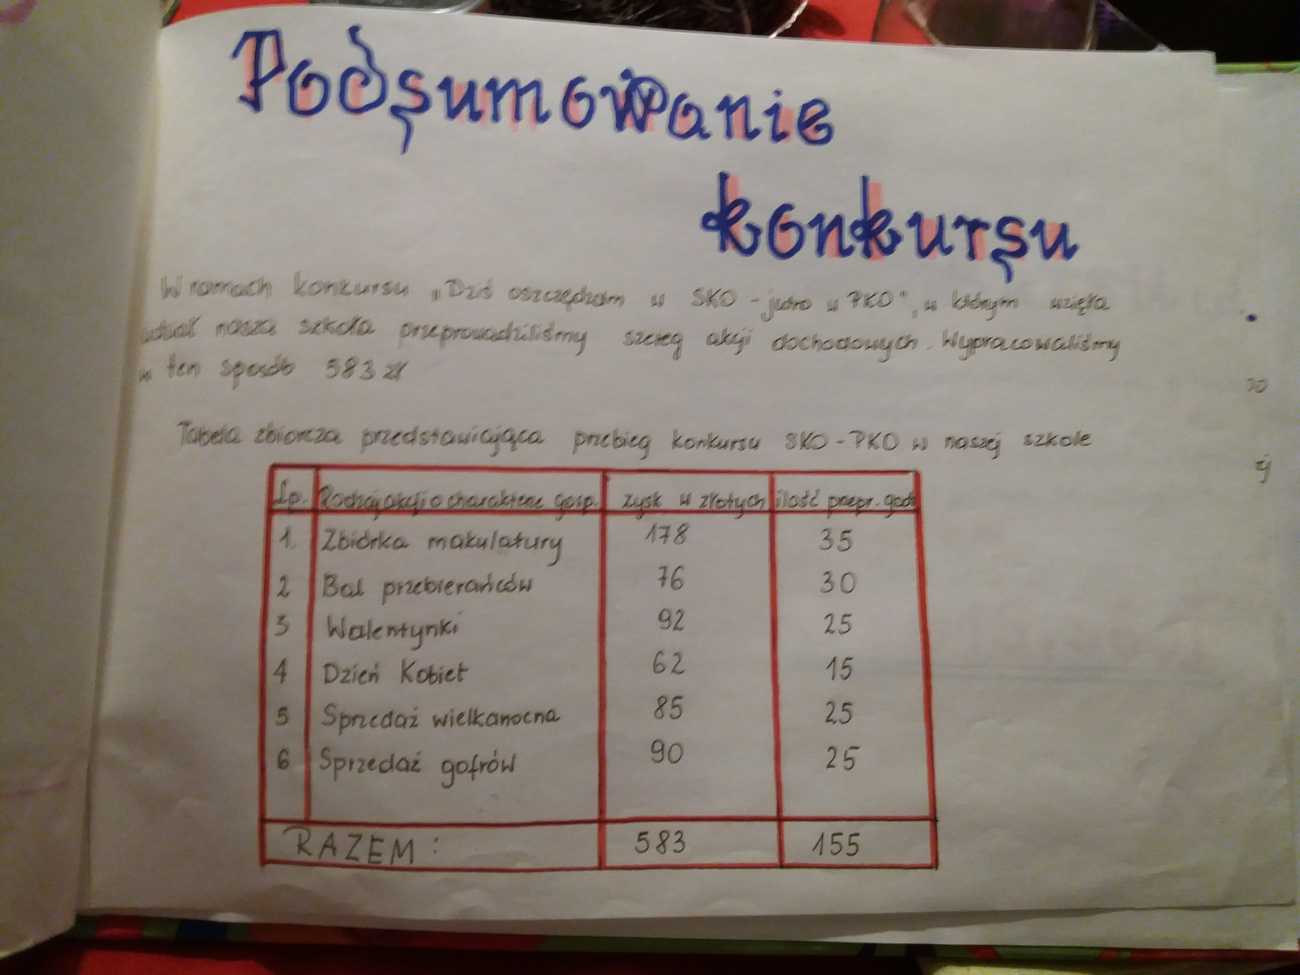 Podsumowanie
konkursu
W ramach konkursu „Dziś oszczędzam w SKO - jutro w PKO", w którym wzięła
udział nasza szkoła przeprowadziliśmy szereg akcji dochodowych. Wypracowaliśmy
w ten sposób 583 zł
Tabela zbiorcza przedstawiająca przebieg konkursu SKO - PKO w naszej szkole
Lp. Rodzaj akcji o charakterze gosp. zysk w złotych ilość przepr. godz
1. Zbiórka makulatury 178 35
2 Bal przebierańców 76 30
3 Walentynki 92 25
4 Dzień Kobiet 62 15
5 Sprzedaż wielkanocna 85 25
6 Sprzedaż gofrów 90 25
RAZEM: 583 155